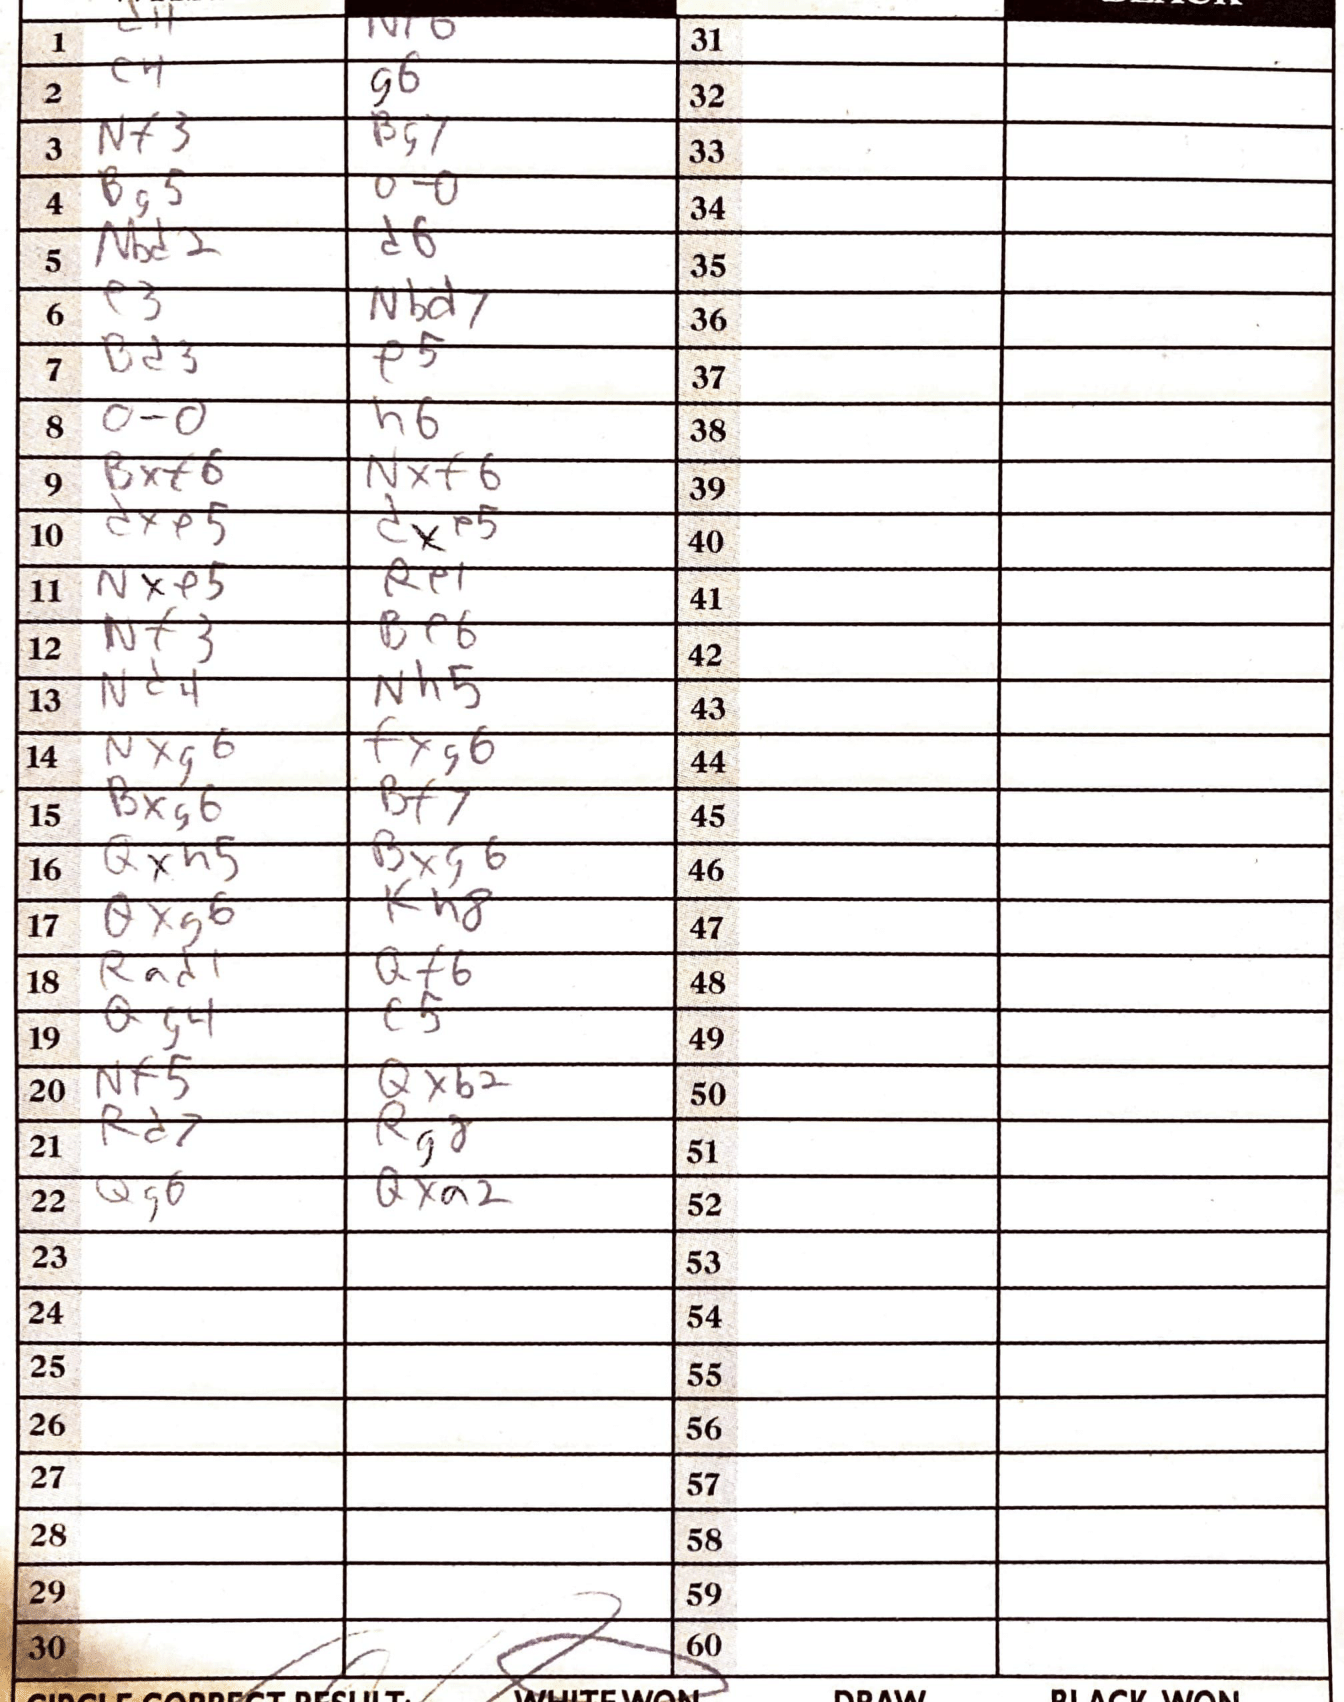 BLACK
1 d4 Nf6 31
2 c4 g6 32
3 Nf3 Bg7 33
4 Bg5 0-0 34
5 Nbd2 d6 35
6 e3 Nbd7 36
7 Bd3 e5 37
8 0-0 h6 38
9 Bxf6 Nxf6 39
10 dxe5 dxe5 40
11 Nxe5 Re1 41
12 Nf3 Be6 42
13 Nd4 Nh5 43
14 Nxg6 fxg6 44
15 Bxg6 Bf7 45
16 Qxh5 Bxg6 46
17 Qxg6 Kh8 47
18 Rad1 Qf6 48
19 Qg4 c5 49
20 Nf5 Qxb2 50
21 Rd7 Rg8 51
22 Qg6 Qxa2 52
23 53
24 54
25 55
26 56
27 57
28 58
29 59
30 60
CIRCLE CORRECT RESULT: WHITE WON DRAW BLACK WON